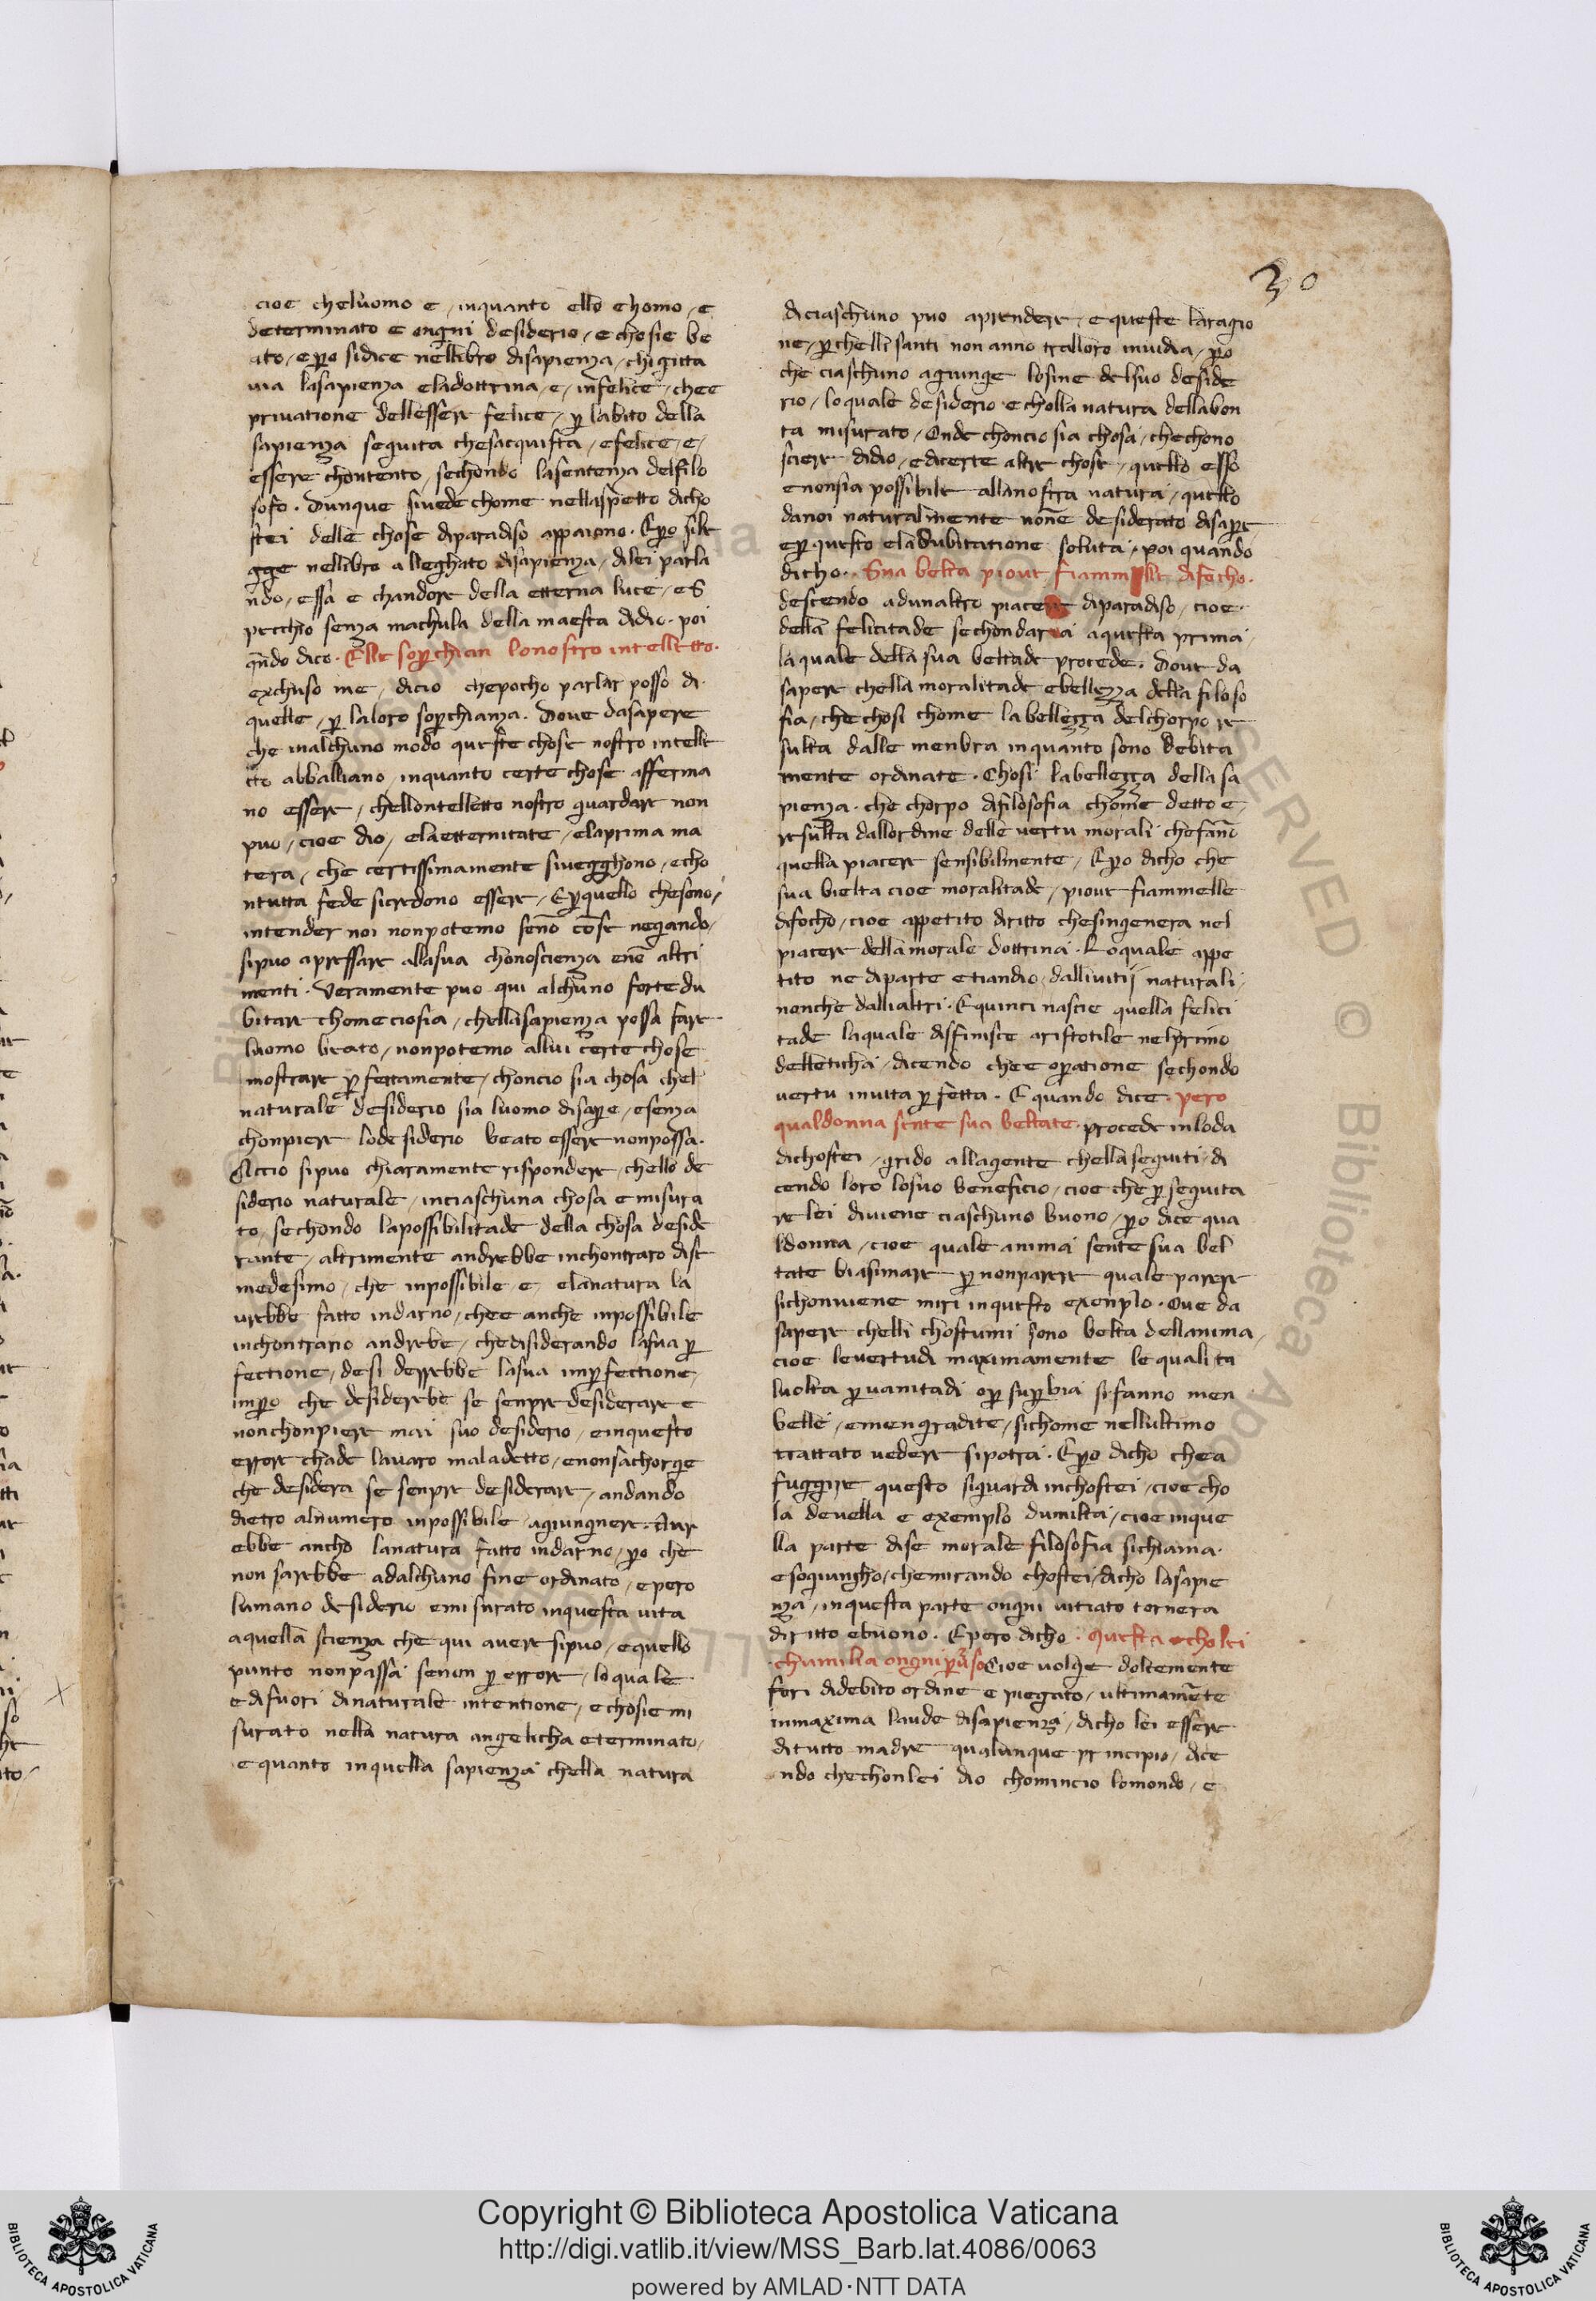 30
cioe cheluomo e / inquanto ello e homo / e
determinato e ongni desiderio / e chosie be
ato / e però sidice nellibro disapienza / chi gitta
uia lasapienza eladottrina / e / infelice / chee
priuatione dellesser felice / p labito della
sapienza seguita chesacquista / e felice / e /
essere chontento / sechondo lasentenza delfilo
sofo . Dunque siuede chome nellaspetto dicho
stei delle chose diparadiso appaiono . Epo sile
gge nellibro alleghato disapienza / dilei parla
ndo / essa e chandore della etterna luce / e s
pecchio senza machula della maesta didio . poi
qndo dico . Elle soperchian lonostro intelletto .
exchuso me / dicio chepocho parlar posso di
quelle / p laloro soperchianza . Doue dasapere
che inalchuno modo queste chose nostro intelle
tto abballiano / inquanto certe chose afferma
no essere / chellontelletto nostro guardare non
puo / cioe dio / elaetternitate / elaprima ma
tera / che certissimamente siuegghono / echo
ntutta fede sicredono essere / Epquello chesono /
intender noi nonpotemo seno cose negando /
sipuo apressare allasua chonoscienza ene altri
menti . Veramente puo qui alchuno forte du
bitare chome ciosia / chellasapienza possa fare
luomo beato / nonpotemo allui certe chose
mostrare pfettamente / choncio sia chosa chel
naturale desiderio sia luomo disape / esenza
chonpiere lodesiderio beato essere nonpossa .
Accio sipuo chiaramente rispondere / chello de
siderio naturale / inciaschuna chosa e misura
to / sechondo lapossibilitade della chosa deside
rante / altrimente andrebbe inchontraro dise
medesimo / che inpossibile e / elanatura la
urebbe fatto indarno / chee anche inpossibile
inchontrario andrebe / chedisiderando lasua p
fectione / desi derrebbe lasua impfectione /
impo che desiderebe se senpre desiderare e
nonchonpiere mai suo desiderio / einquesto
errore chade lauaro maladetto / enonsachorge
che desidera se senpre desiderare / andando
dietro alnumero inpossibile agiungnere . Aur
ebbe ancho lanatura fatto indarno / po che
non sarebbe adalchuno fine ordinato / epero
lumano desiderio emisurato inquesta uita
aquella scienza che qui auere sipuo / equello
punto nonpassa senon p errore / lo quale
edifuori dinaturale intentione / echosie mi
surato nella natura angelicha eterminato /
e quanto inquella sapienza chella natura
diciaschuno puo aprendere / e queste laragio
ne / pchelli santi non anno tralloro inuidia / po
che ciaschuno agiunge lofine delsuo deside
rio / loquale desiderio echolla natura dellabon
ta misurato / Onde choncio sia chosa / chechono
sciere didio / edicerte altre chose / quello esso
enonsia possibile allanostra natura / quello
danoi naturalmente none desiderato disape
epquesto ela dubitatione soluta / poi quando
dicho . Sua belta pioue fiammelle difocho .
descendo adunaltro piacere diparadiso / cioe .
della felicitade sechondaria aquesta prima /
laquale della sua beltade procede . Doue da
sapere chella moralitade ebellezza della filoso
fia / che chosi chome labellezza delchorpo re
sulta dalle menbra inquanto sono debita
mente ordinate . Chosi labellezza della sa
pienza . che chorpo difilosofia chome detto e /
resulta dallordine delle uertu morali chefano
quella piacere sensibilmente / Epo dicho che
sua bielta cioe moralitade / pioue fiammelle
difocho / cioe appetito diritto chesingenera nel
piacere dellamorale dottrina . Loquale appe
tito ne diparte etiandio / dalliuitij naturali /
nonche dallialtri . Equinci nascie quella felici
tade laquale disfinisce aristotile nelprimo
delleticha / dicendo chee opatione sechondo
uertu inuita pfetta . E quando dice . pero
qualdonna sente sua beltate . procede inloda
dichostei / grido allagente chellaseguiti / di
cendo loro losuo beneficio / cioe che p seguita
re lei diuene ciaschuno buono / po dice qua
ldonna / cioe quale anima sente sua bel
tate biasimare p nonparere quale parere
sichonuiene miri inquesto exenplo . Oue da
sapere chelli chostumi sono belta dellanima /
cioe leuertudi maximamente le quali ta
luolta puanitadi op supbia sifanno men
belle / emengradite / sichome nellultimo
trattato uedere sipotra . Epo dicho chea
fuggire questo siguardi inchostei / cioe cho
la deuella e exemplo dumilta / cioe inque
lla parte dise morale filosofia sichiama .
esoguingho / chemirando chostei / dicho lasapie
nza / inquesta parte ongni uitiato tornera
diritto ebuono . Epero dicho . Questa e cholei
chumilia ongni puso Cioe uolge dolcemente
fori didebito ordine e piegato / ultimamete
inmaxima laude disapienza / dicho lei essere
ditutto madre qualunque principio / dice
ndo chechonlei dio chomincio lomondo / e
Copyright © Biblioteca Apostolica Vaticana
http://digi.vatlib.it/view/MSS_Barb.lat.4086/0063
powered by AMLAD·NTT DATA
BIBLIOTECA APOSTOLICA VATICANA
BIBLIOTECA APOSTOLICA VATICANA